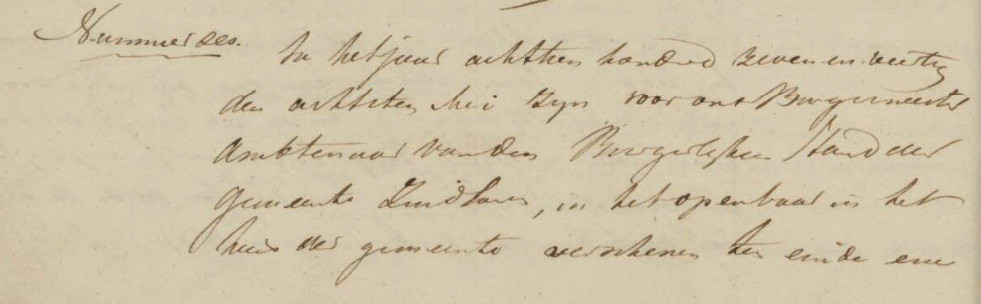 Nummer zes.
In het jaar achttien honderd zeven en veertig
den achtsten Mei zyn voor ons Burgemeester
Ambtenaar van den Burgerlyken Stand der
gemeente Zuidlaren, in het openbaar in het
huis der gemeente verschenen ten einde een